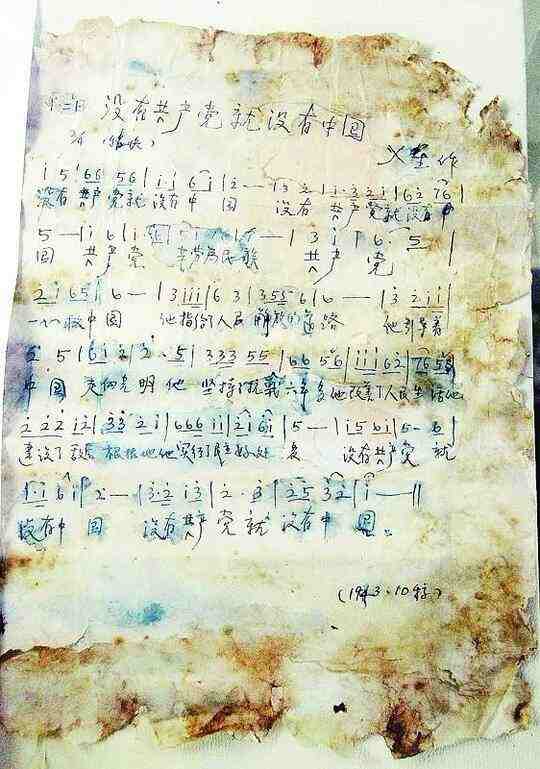 没有共产党就没有中国
2/4
火星作
i 5 | 6 6 5 6 | i · i 6 i | 2 — | i 3 2 | i · 3 2 i | 6 2 7 6 |
没有共产党就没有中国 没有共产党就没有中
5 — | i 6 | i
国 共产党 辛劳为民族 共产党
2 i 6 5 | 6 — | 3 i i i | 6 3 | 3 5 5 6 | 6 — | i 3 2 i i |
一心救中国 他指给人民解放的道路 他引导着
5 5 | 6 i 2 | 2 · 5 | 3 3 3 5 5 | 6 6 5 6 | i i i | 6 2 |
中国走向光明他坚持了抗战六年多他改善了人民生活他
2 2 2 i 2 | 3 3 2 i | 6 6 6 i i | 2 i 6 i | 5 — | i 5 6 i | 5 · 6 |
建设了敌后根据地他实行了民主好处多 没有共产党就
i · i 6 i | 2 — | 3 · 2 i 3 | 2 · 3 | 2 5 3 2 | i — ||
没有中国 没有共产党就没有中国
(1943·10